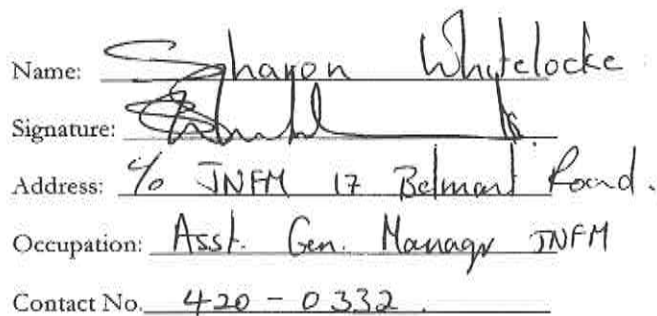 Name: Sharon Whitelocke
Signature:
Address: c/o JNFM 17 Belmont Road.
Occupation: Asst. Gen. Managr JNFM
Contact No. 420-0332.